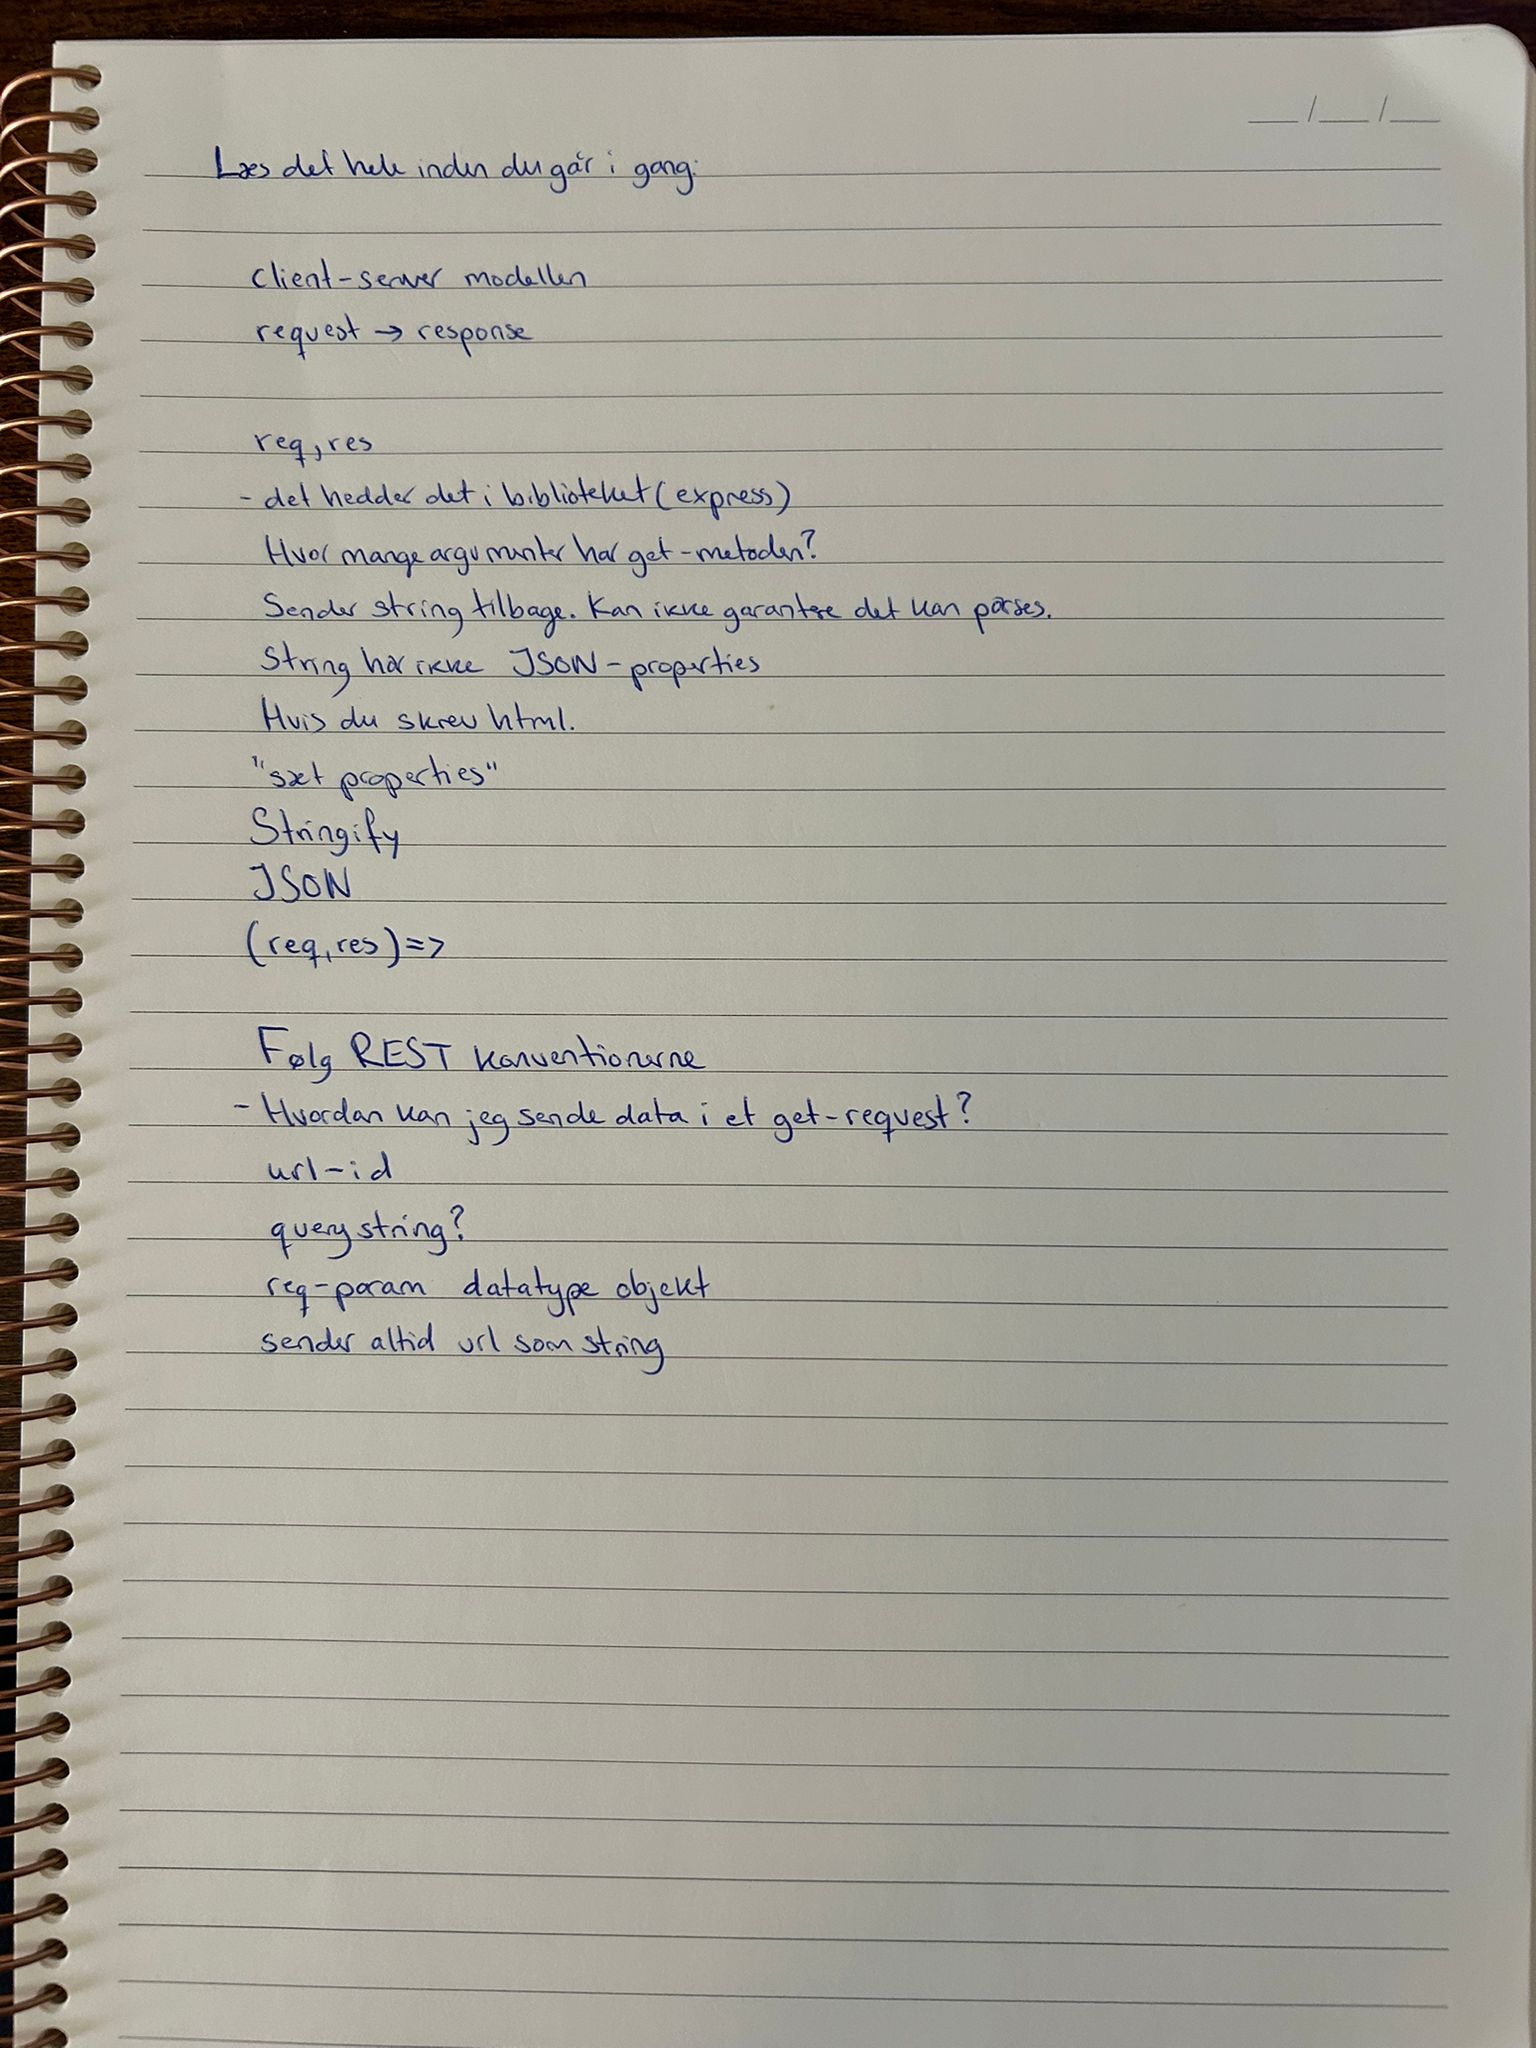 Læs det hele inden du går i gang:
client-server modellen
request → response
req, res
- det hedder det i biblioteket (express)
Hvor mange argumenter har get-metoden?
Sender string tilbage. Kan ikke garantere det kan parses.
String har ikke JSON-properties
Hvis du skrev html.
"sæt properties"
Stringify
JSON
(req, res) =>
Følg REST konventionerne
- Hvordan kan jeg sende data i et get-request?
url-id
query string?
req-param datatype objekt
sender altid url som string